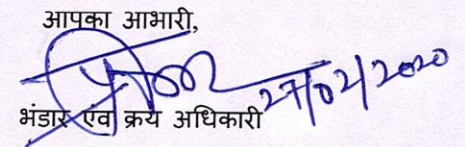 आपका आभारी,
27/02/2020
भंडार एवं क्रय अधिकारी